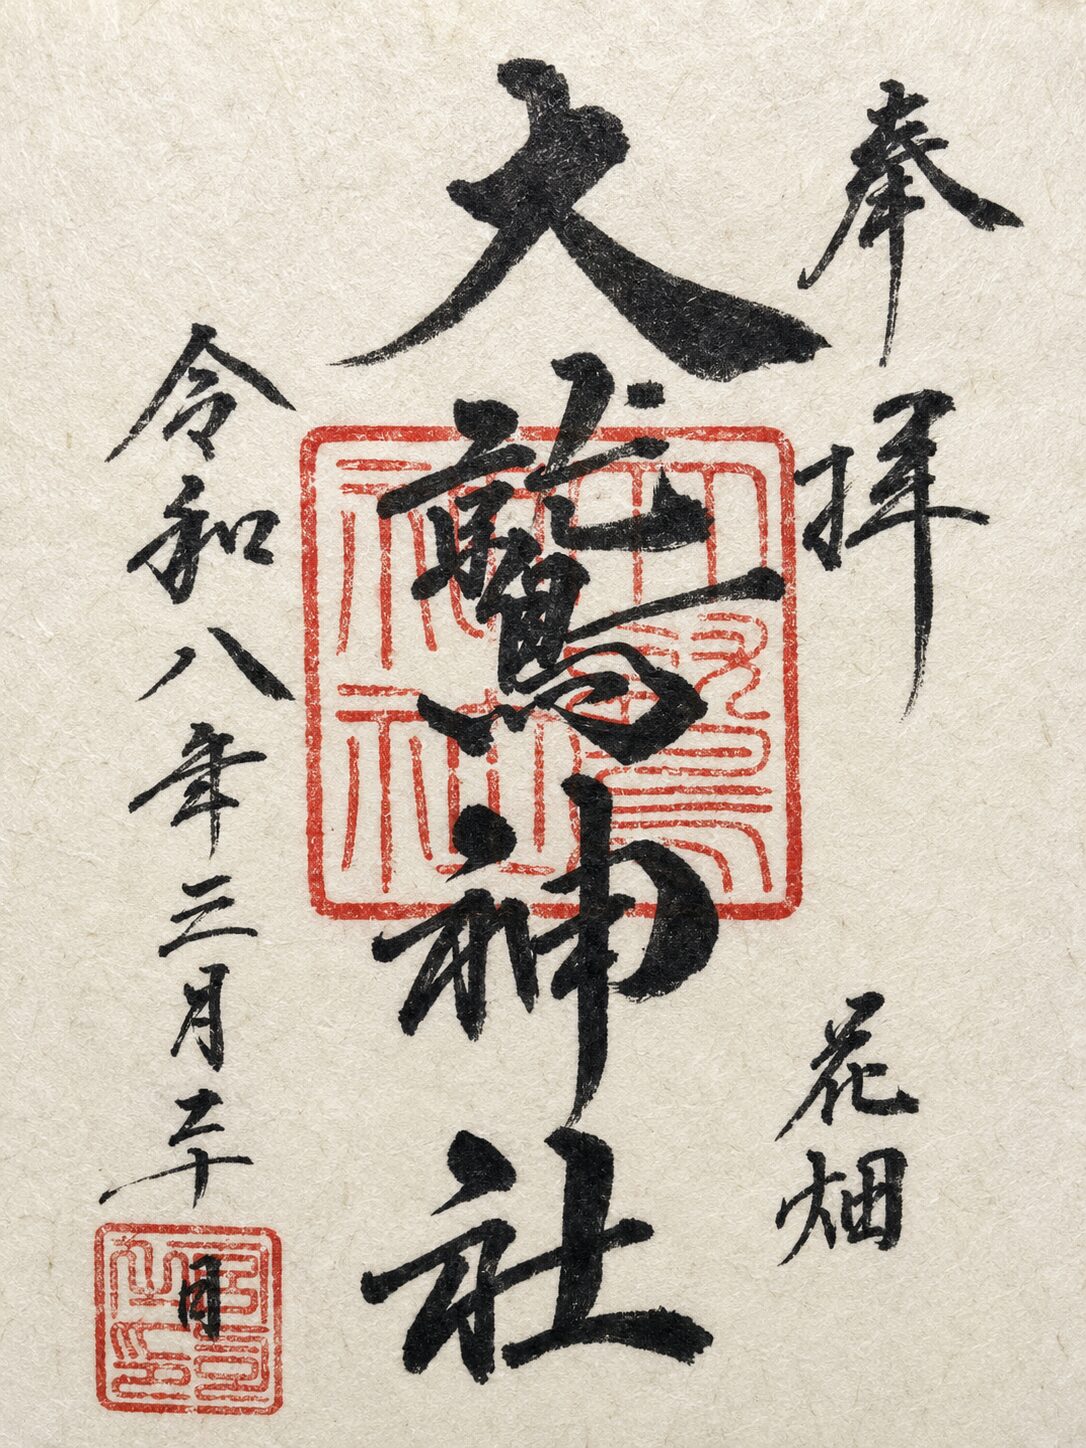 奉拝
花畑
大鷲神社
令和八年三月二十日